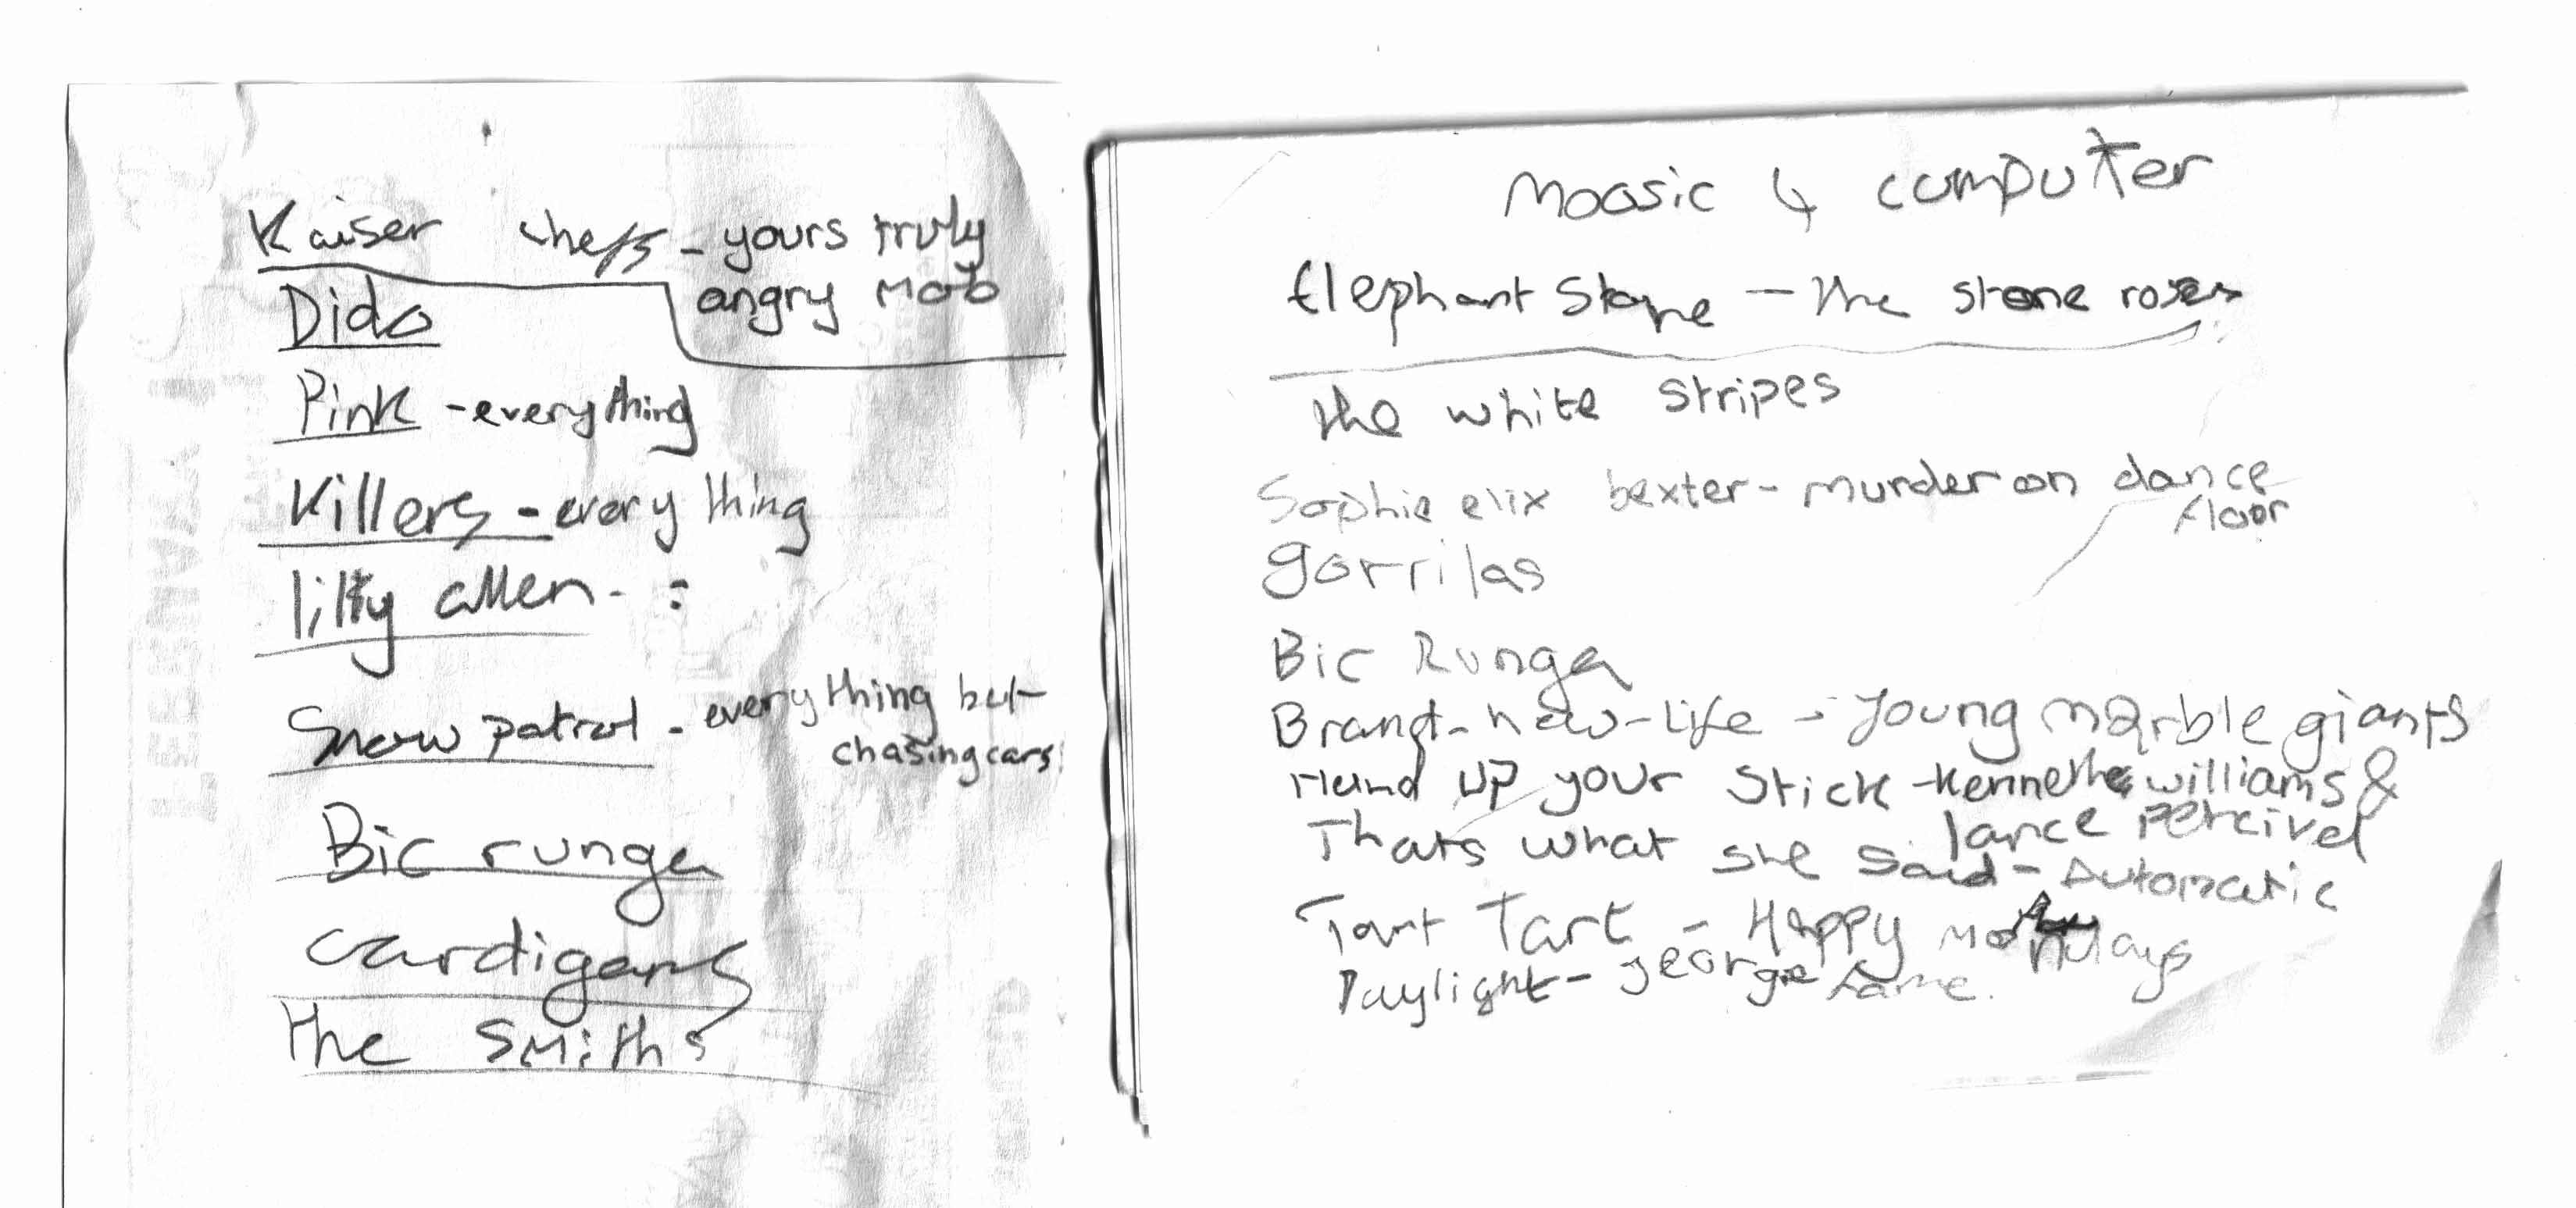 Kaiser chefs - yours truly
angry mob
Dido
Pink - everything
Killers - everything
lilly allen - :
Snow patrol - everything but
chasing cars
Bic runga
cardigans
the smiths
moosic 4 computer
Elephant Stone - the stone roses
the white stripes
Sophie elix bexter - murder on dance
floor
gorrilas
Bic Runga
Brand - new - life - young marble giants
Hand up your Stick - Kennethe williams &
lance percivel
Thats what she said - Automatic
Tart Tart - Happy mondays
Daylight - george fame.